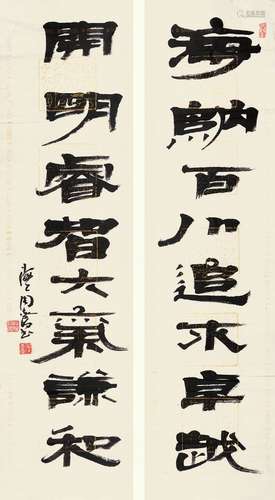 海納百川追求卓越
開明睿智大氣謙和
周慧珺